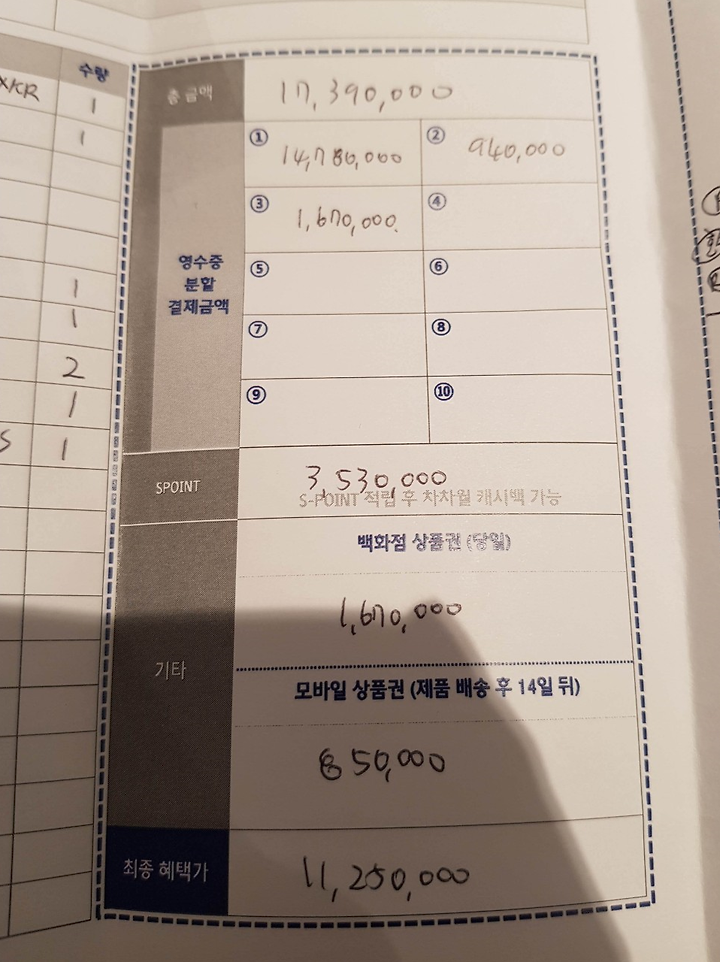 수량
X/CR 1
1
1
1
2
1
S 1
총 금액 17,390,000
영수증
분할
결제금액
① 14,780,000 ② 940,000
③ 1,670,000 ④
⑤ ⑥
⑦ ⑧
⑨ ⑩
SPOINT 3,530,000
S-POINT 적립 후 차차월 캐시백 가능
기타
백화점 상품권 (당일)
1,670,000
모바일 상품권 (제품 배송 후 14일 뒤)
850,000
최종 혜택가 11,250,000